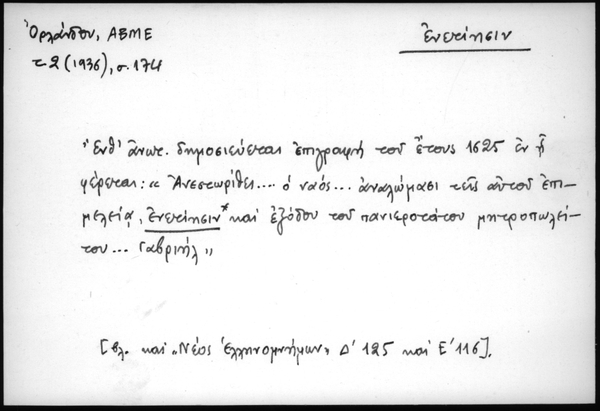 Ὀρλάνδου, ΑΒΜΕ
τ. 2 (1936), σ. 174
ἐνετίησιν
Ἔνθ' ἄνωτ. δημοσιεύεται ἐπιγραφὴ τοῦ ἔτους 1625 ἐν ᾗ
φέρεται: « Ἀνεστωρίθει.... ὁ ναός... ἀναλώμασι τεῖς αὐτοῦ ἐπι-
μελείᾳ, Ἐνετίησιν* καὶ ἐξόδου τοῦ πανιεροτάτου μητροπωλεί-
του... Γαβριήλ »
[βλ. καὶ «Νέος Ἑλληνομνήμων» Δ' 125 καὶ Ε' 116].